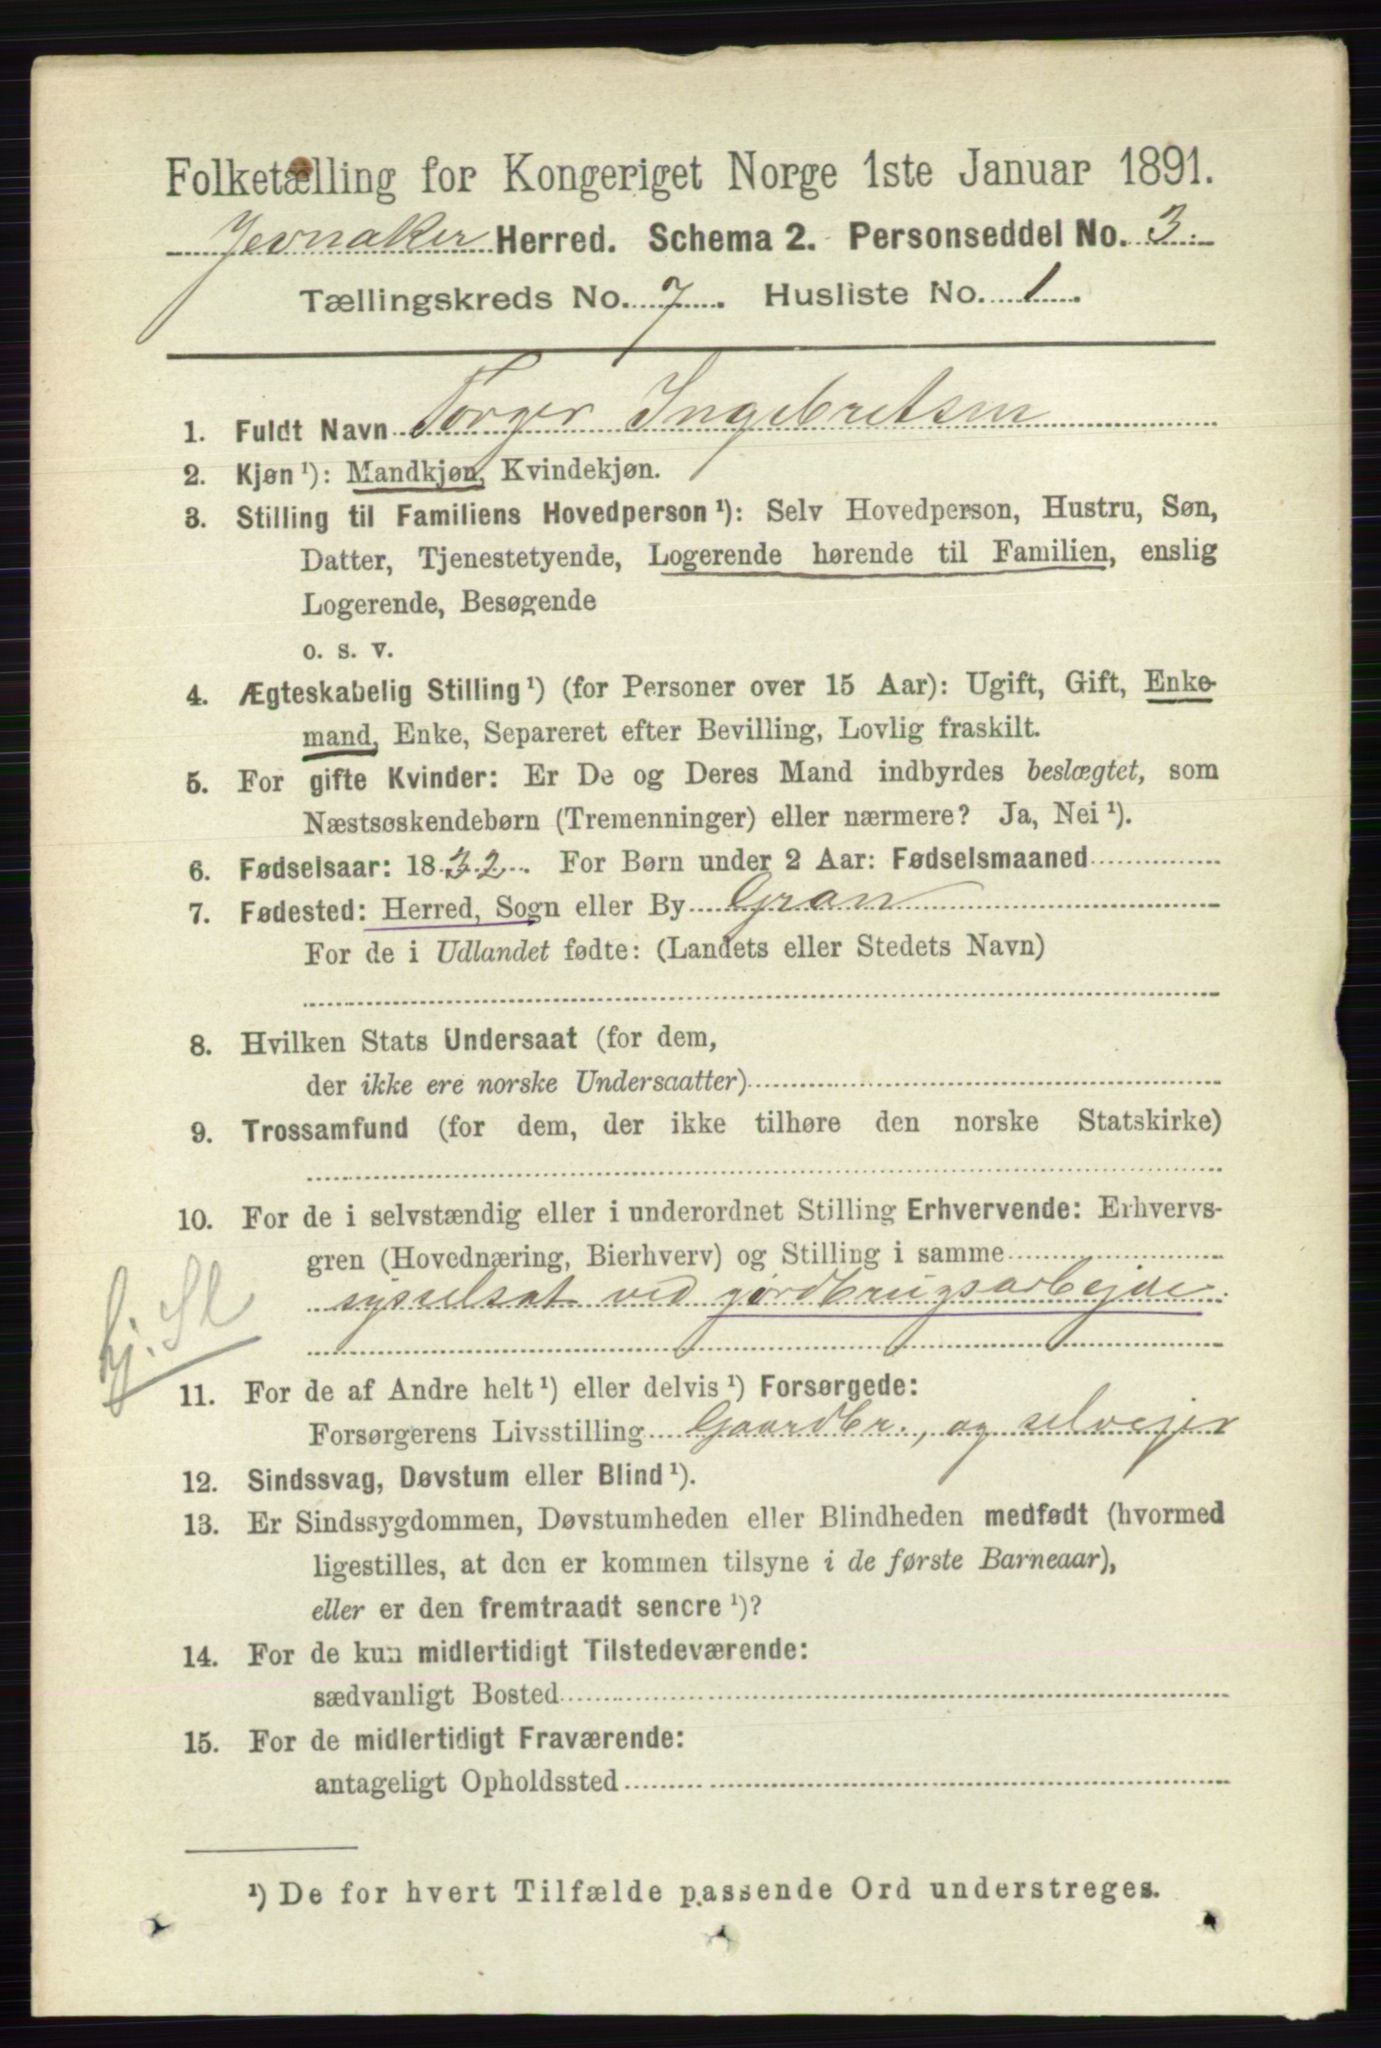 Folketælling for Kongeriget Norge 1ste Januar 1891.
Jevnaker Herred. Schema 2. Personseddel No. 3.
Tællingskreds No. 7. Husliste No. 1.
1. Fuldt Navn Torger Ingebretsen
2. Kjøn ¹): Mandkjøn, Kvindekjøn.
3. Stilling til Familiens Hovedperson ¹): Selv Hovedperson, Hustru, Søn,
Datter, Tjenestetyende, Logerende hørende til Familien, enslig
Logerende, Besøgende
o. s. v.
4. Ægteskabelig Stilling ¹) (for Personer over 15 Aar): Ugift, Gift, Enke-
mand, Enke, Separeret efter Bevilling, Lovlig fraskilt.
5. For gifte Kvinder: Er De og Deres Mand indbyrdes beslægtet, som
Næstsøskendebørn (Tremenninger) eller nærmere? Ja, Nei ¹).
6. Fødselsaar: 1832. For Børn under 2 Aar: Fødselsmaaned
7. Fødested: Herred, Sogn eller By Gran
For de i Udlandet fødte: (Landets eller Stedets Navn)
8. Hvilken Stats Undersaat (for dem,
der ikke ere norske Undersaatter)
9. Trossamfund (for dem, der ikke tilhøre den norske Statskirke)
10. For de i selvstændig eller i underordnet Stilling Erhvervende: Erhvervs-
gren (Hovednæring, Bierhverv) og Stilling i samme
sysselsat ved gårdbrugsarbejde.
hj. Sl
11. For de af Andre helt ¹) eller delvis ¹) Forsørgede:
Forsørgerens Livsstilling Gaardbr., og selvejer
12. Sindssvag, Døvstum eller Blind ¹).
13. Er Sindssygdommen, Døvstumheden eller Blindheden medfødt (hvormed
ligestilles, at den er kommen tilsyne i de første Barneaar),
eller er den fremtraadt senere ¹)?
14. For de kun midlertidigt Tilstedeværende:
sædvanligt Bosted
15. For de midlertidigt Fraværende:
antageligt Opholdssted
¹) De for hvert Tilfælde passende Ord understreges.